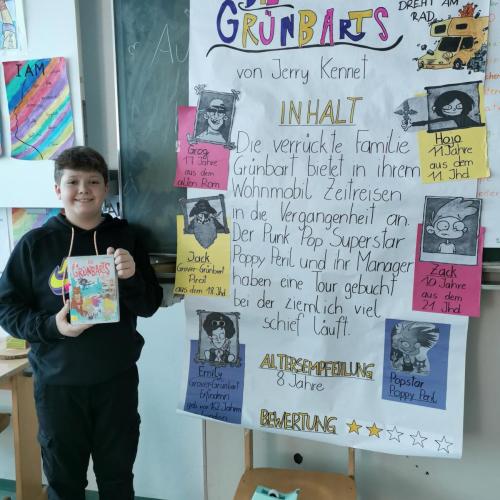 DIE
GRÜNBARTS
von Jerry Kennet
DREHT AM
RAD
INHALT
Die verrückte Familie
Grünbart bietet in ihrem
Wohnmobil Zeitreisen
in die Vergangenheit an.
Der Punk Pop Superstar
Poppy Peril und ihr Manager
haben eine Tour gebucht
bei der ziemlich viel
schief läuft.
ALTERSEMPFEHLUNG
8 Jahre
BEWERTUNG
Grog
17 Jahre
aus dem
alten Rom
Jack
Grover-Grünbart
Pirat
aus dem 18 Jhd
Emily
Grover-Grünbart
Erfinderin
geb vor 162 Jahren
London
Hojo
11 Jahre
aus dem
11 Jhd
Zack
10 Jahre
aus dem
21 Jhd
Popstar
Poppy Peril
I AM
GRÜNBARTS